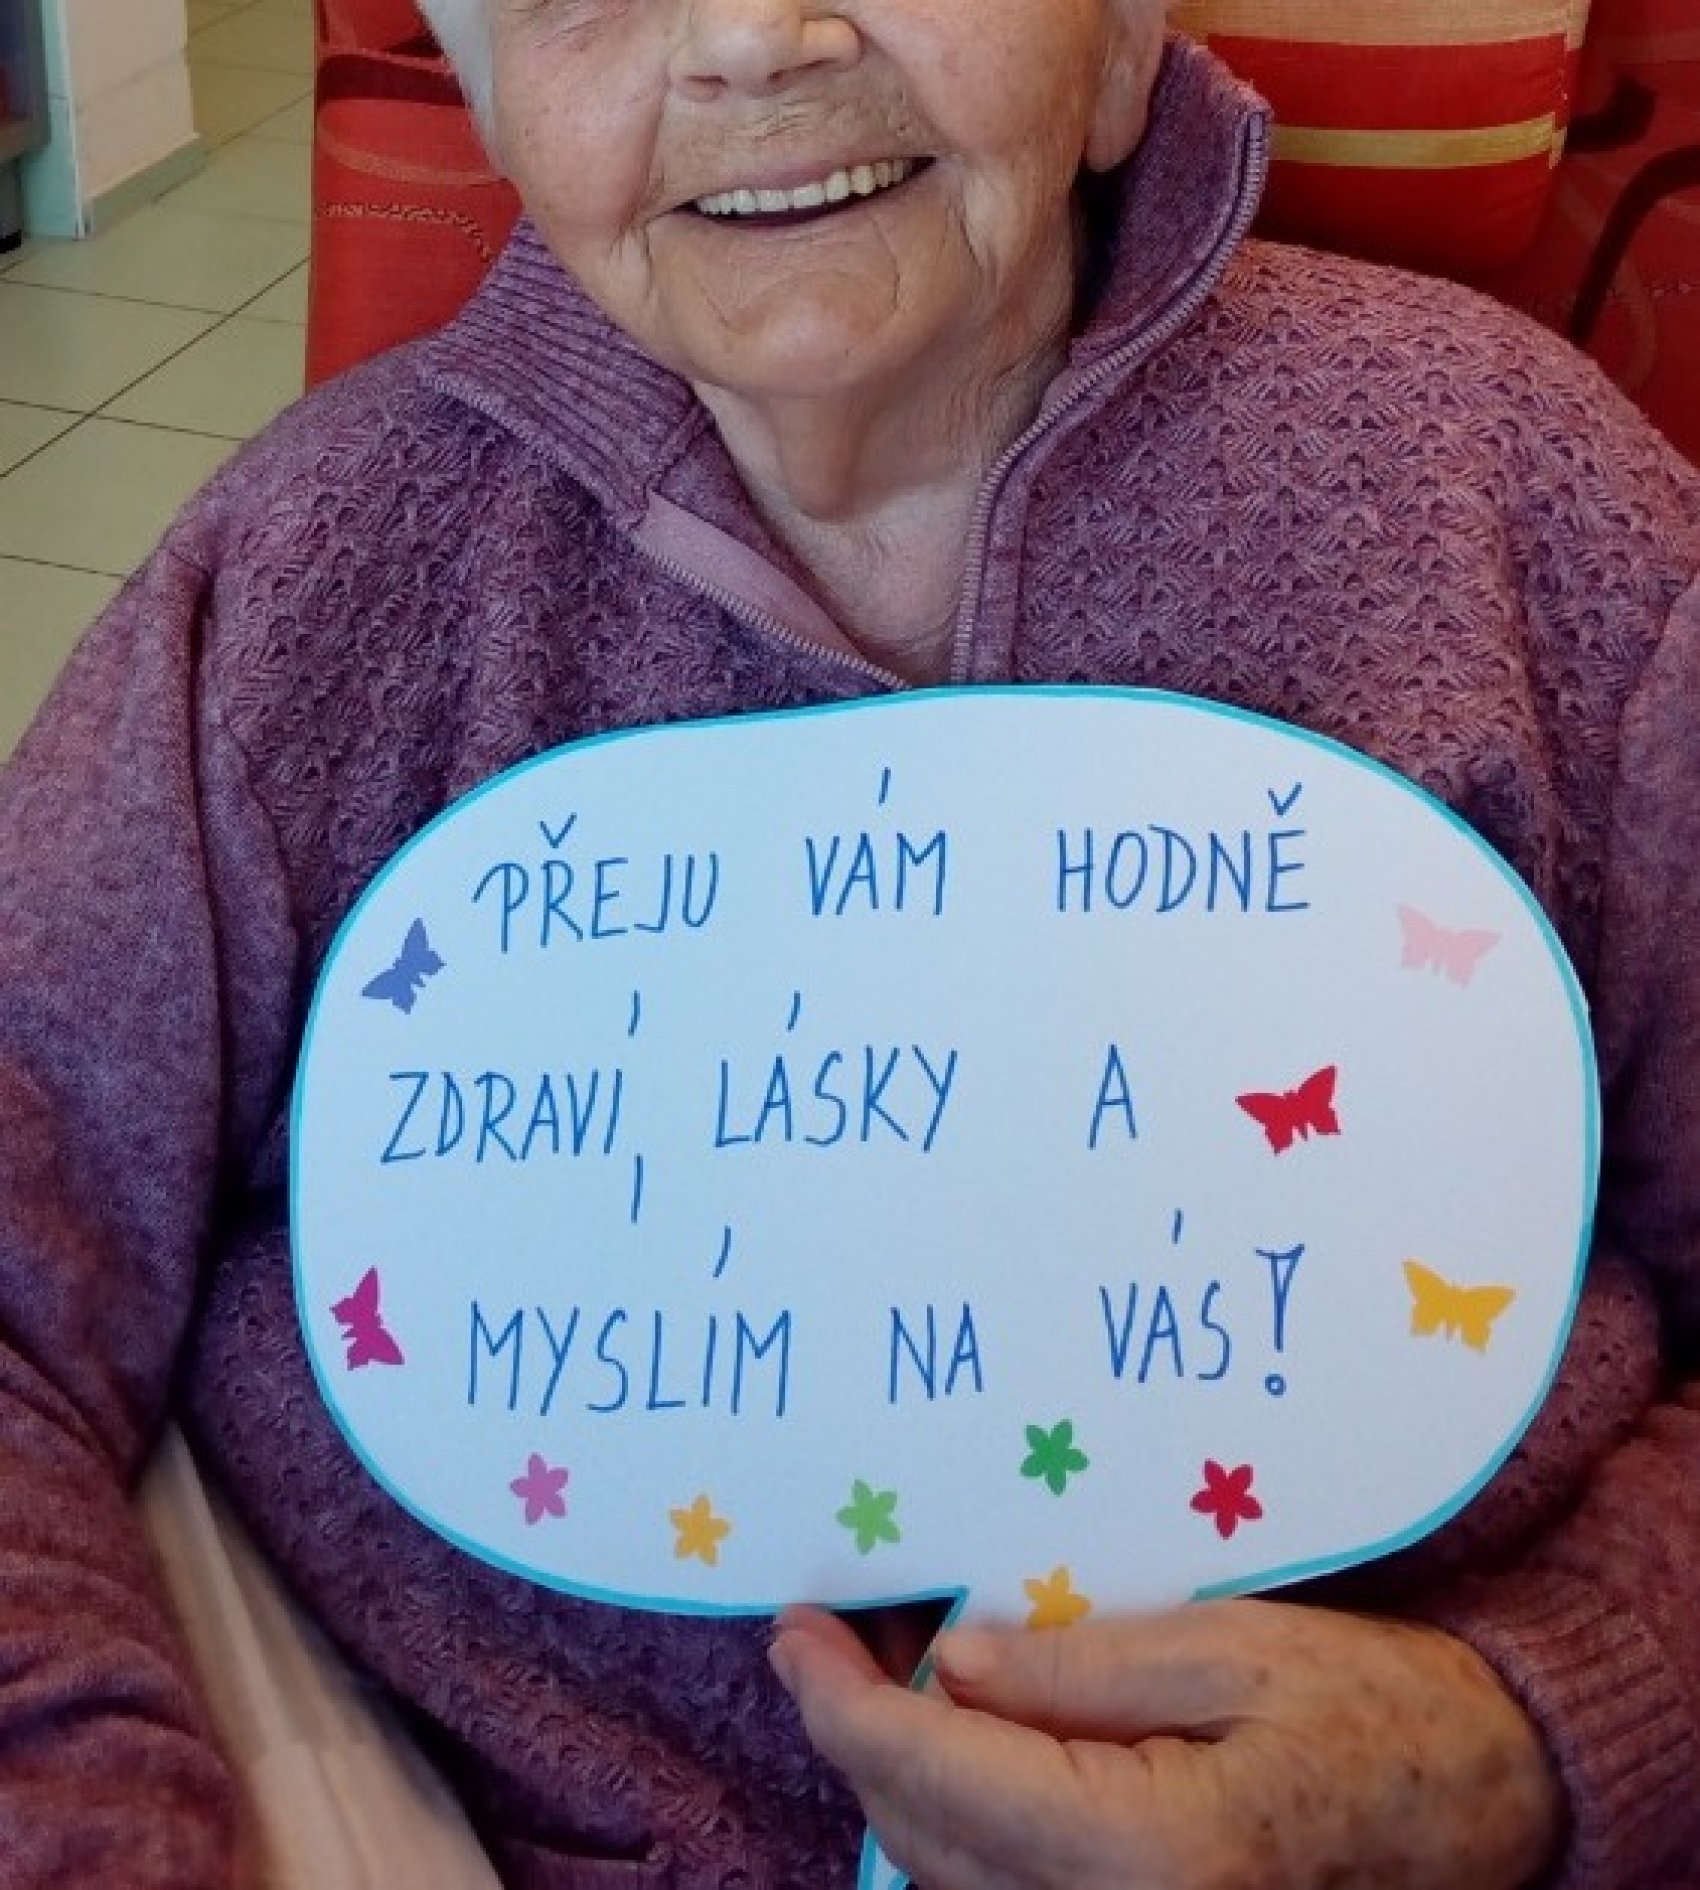 PŘEJU VÁM HODNĚ
ZDRAVÍ, LÁSKY A
MYSLÍM NA VÁS!